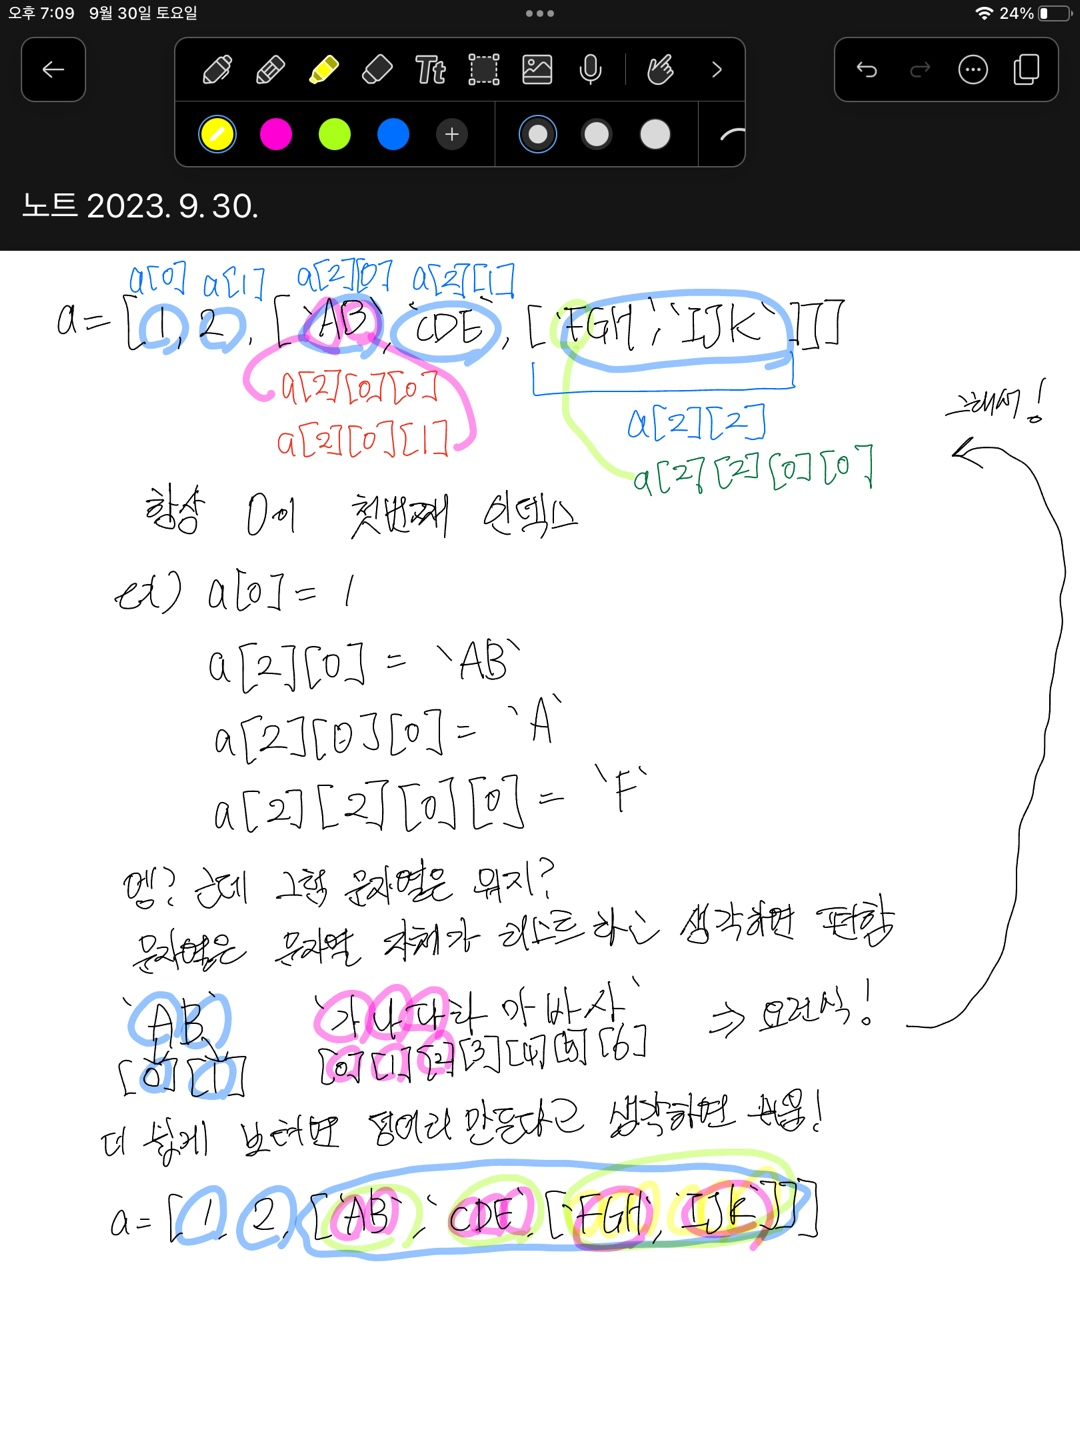 오후 7:09 9월 30일 토요일
24%
Tt
노트 2023. 9. 30.
a[0] a[1] a[2][0] a[2][1]
a = [1, 2, [`AB`, `CDE`, [`FGH`, `IJK`]]]
a[2][0][0]
a[2][0][1]
a[2][2]
a[2][2][0][0]
그래서!
항상 0이 첫번째 인덱스
ex) a[0] = 1
a[2][0] = `AB`
a[2][0][0] = `A`
a[2][2][0][0] = `F`
엥? 근데 그럼 문자열은 뭐지?
문자열은 문자열 자체가 리스트라는 생각하면 편함
`AB` `가나다라마바사` ⇒ 요런식!
[0][1] [0][1][2][3][4][5][6]
더 쉽게 보려면 덩어리 만든다고 생각하면 쉬움!
a = [1, 2, [`AB`, `CDE`, [`FGH`, `IJK`]]]